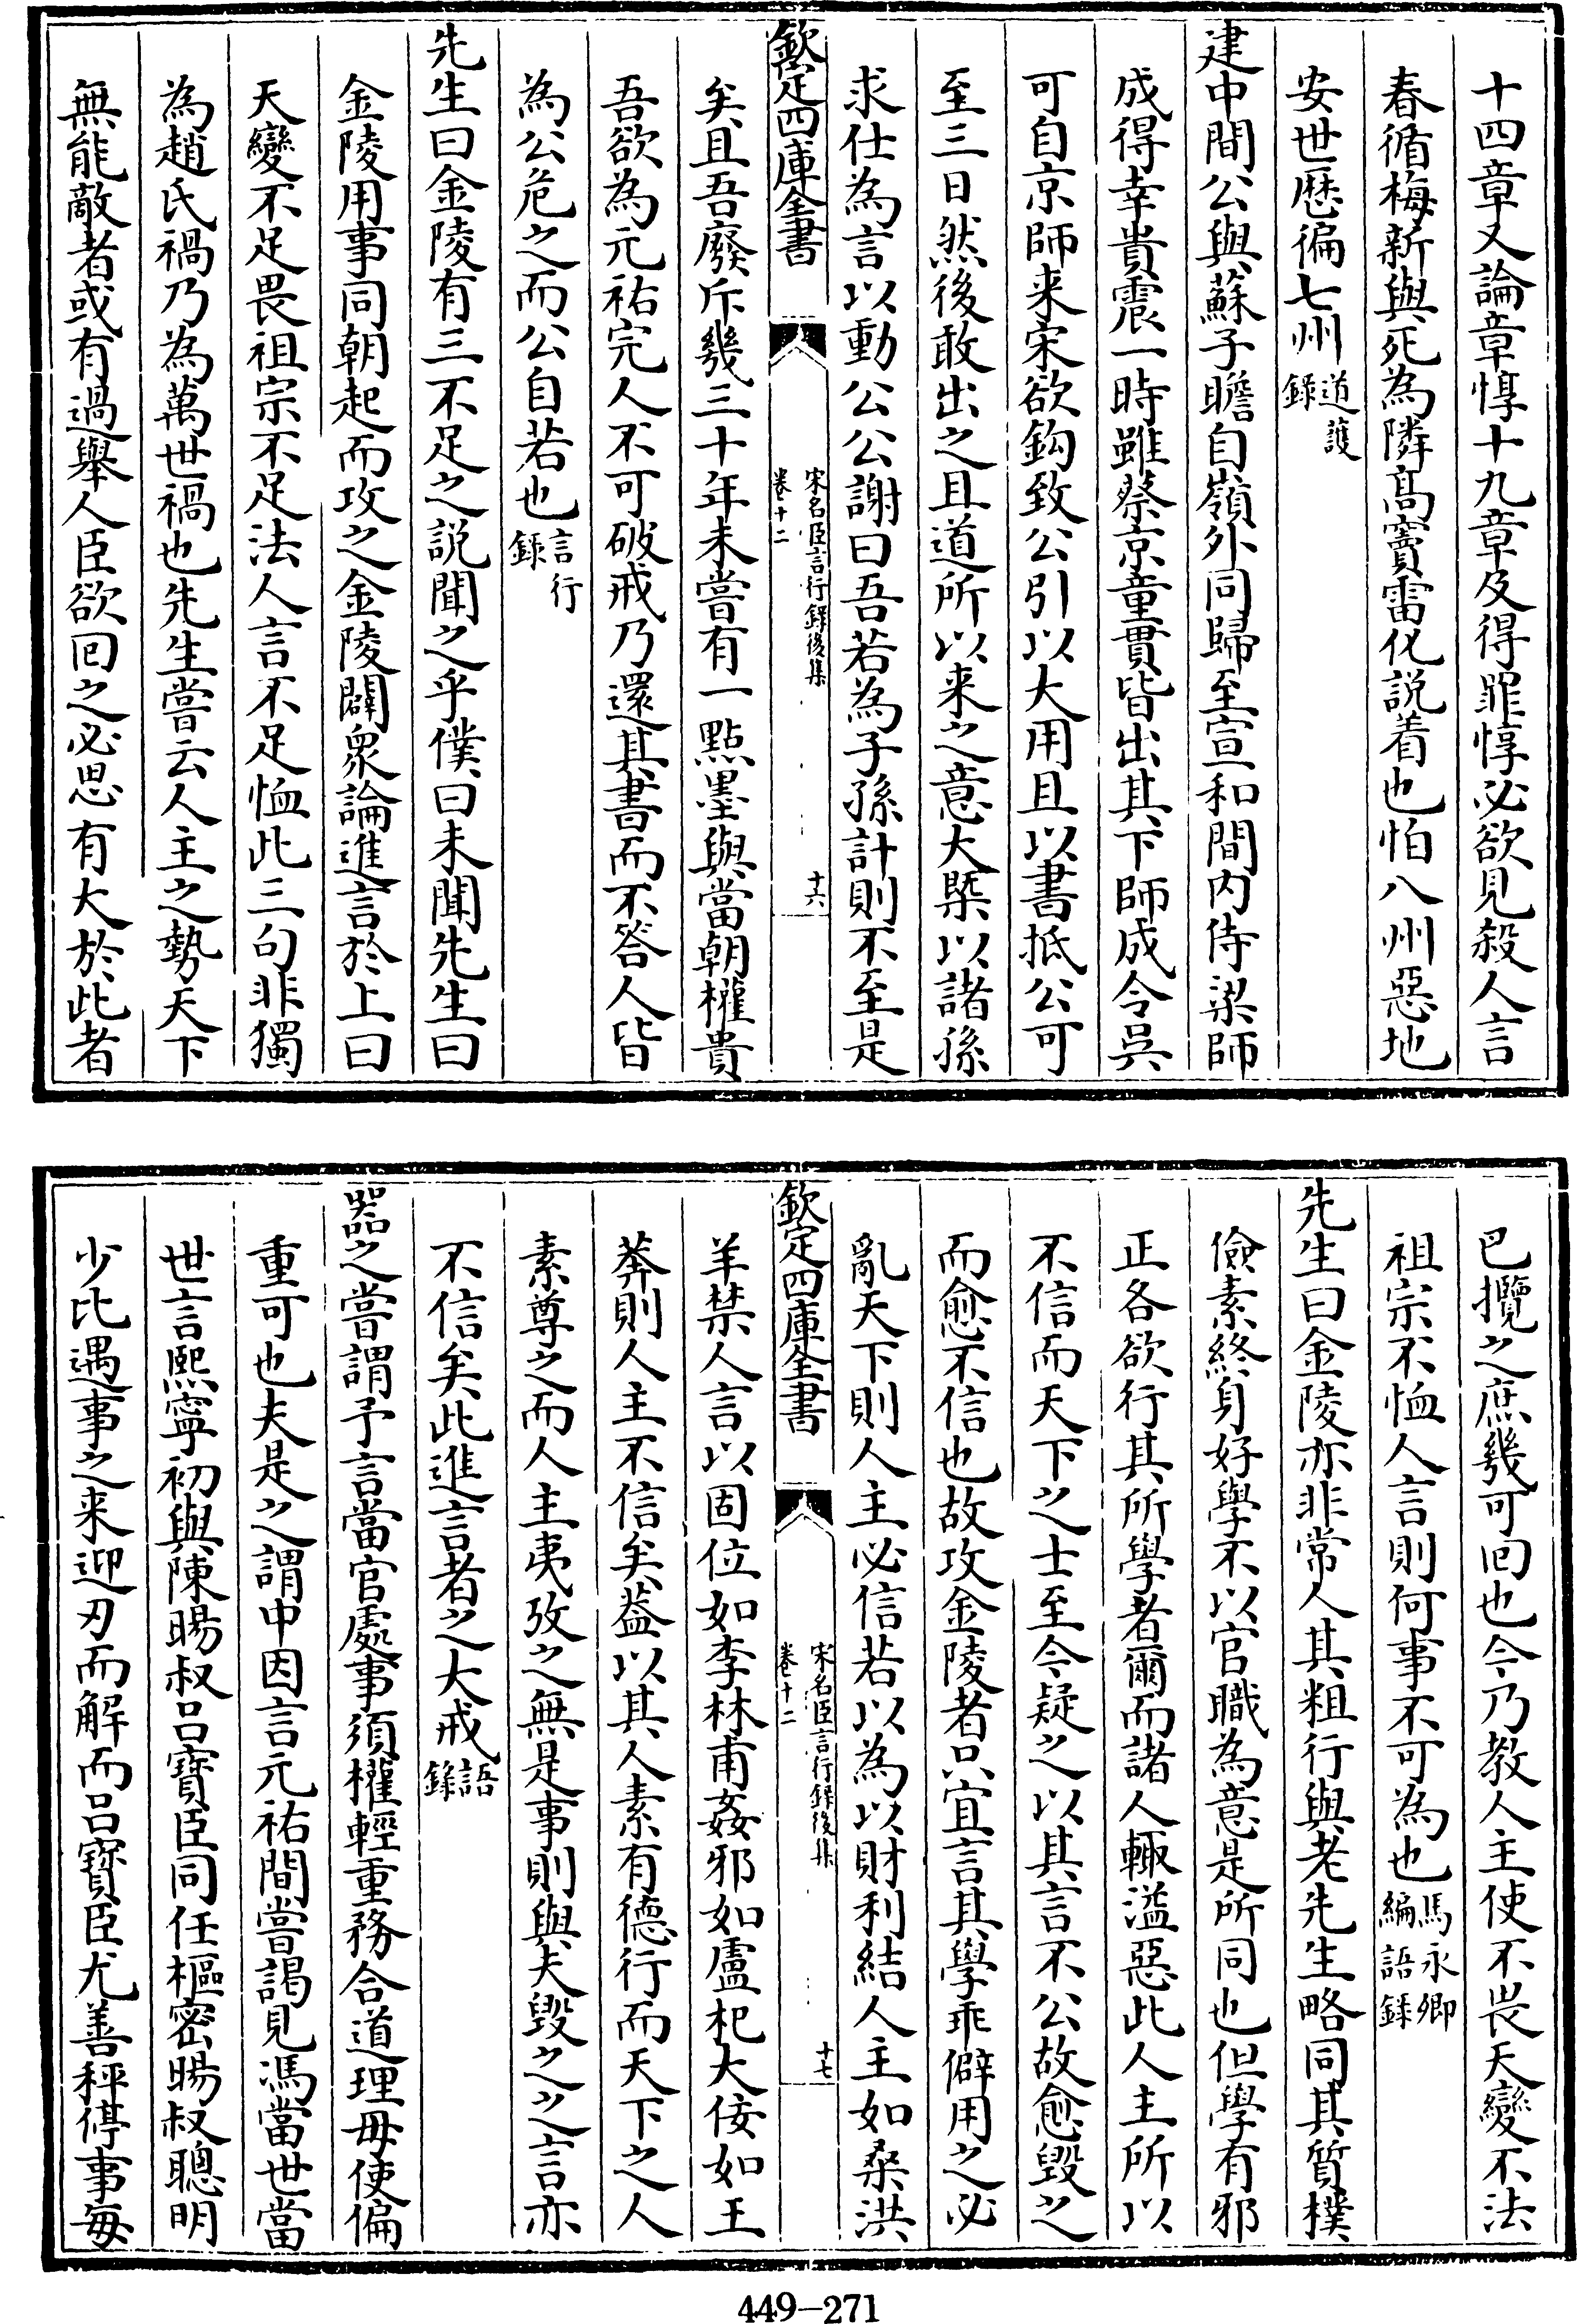 十四章又論章惇十九章及得罪惇必欲見殺人言
春循梅新與死為隣高竇雷化説着也怕八州惡地
安世歴徧七州道護錄
建中間公與蘇子瞻自嶺外同歸至宣和間内侍梁師
成得幸貴震一時雖蔡京童貫皆出其下師成令吳
可自京師来宋欲鈎致公引以大用且以書抵公可
至三日然後敢出之且道所以来之意大槩以諸孫
求仕為言以動公公謝曰吾若為子孫計則不至是
欽定四庫全書
宋名臣言行録後集
卷十二
十六
矣且吾廢斥幾三十年未嘗有一點墨與當朝權貴
吾欲為元祐完人不可破戒乃還其書而不答人皆
為公危之而公自若也言行錄
先生曰金陵有三不足之説聞之乎僕曰未聞先生曰
金陵用事同朝起而攻之金陵闢衆論進言於上曰
天變不足畏祖宗不足法人言不足恤此三句非獨
為趙氏禍乃為萬世禍也先生嘗云人主之勢天下
無能敵者或有過舉人臣欲回之必思有大於此者
巴攬之庶幾可回也今乃教人主使不畏天變不法
祖宗不恤人言則何事不可為也馬永卿編語錄
先生曰金陵亦非常人其粗行與老先生略同其質樸
儉素終身好學不以官職為意是所同也但學有邪
正各欲行其所學者爾而諸人輙溢惡此人主所以
不信而天下之士至今疑之以其言不公故愈毀之
而愈不信也故攻金陵者只宜言其學乖僻用之必
亂天下則人主必信若以為以財利結人主如桑洪
欽定四庫全書
宋名臣言行録後集
卷十二
十七
羊禁人言以固位如李林甫姦邪如盧杞大佞如王
莽則人主不信矣葢以其人素有德行而天下之人
素尊之而人主夷攷之無是事則與夫毀之之言亦
不信矣此進言者之大戒語錄
器之嘗謂予言當官處事須權輕重務合道理毋使偏
重可也夫是之謂中因言元祐間嘗謁見馮當世當
世言熙寧初與陳暘叔吕寶臣同任樞密暘叔聰明
少比遇事之来迎刃而解而吕寶臣尤善秤停事每
449-271